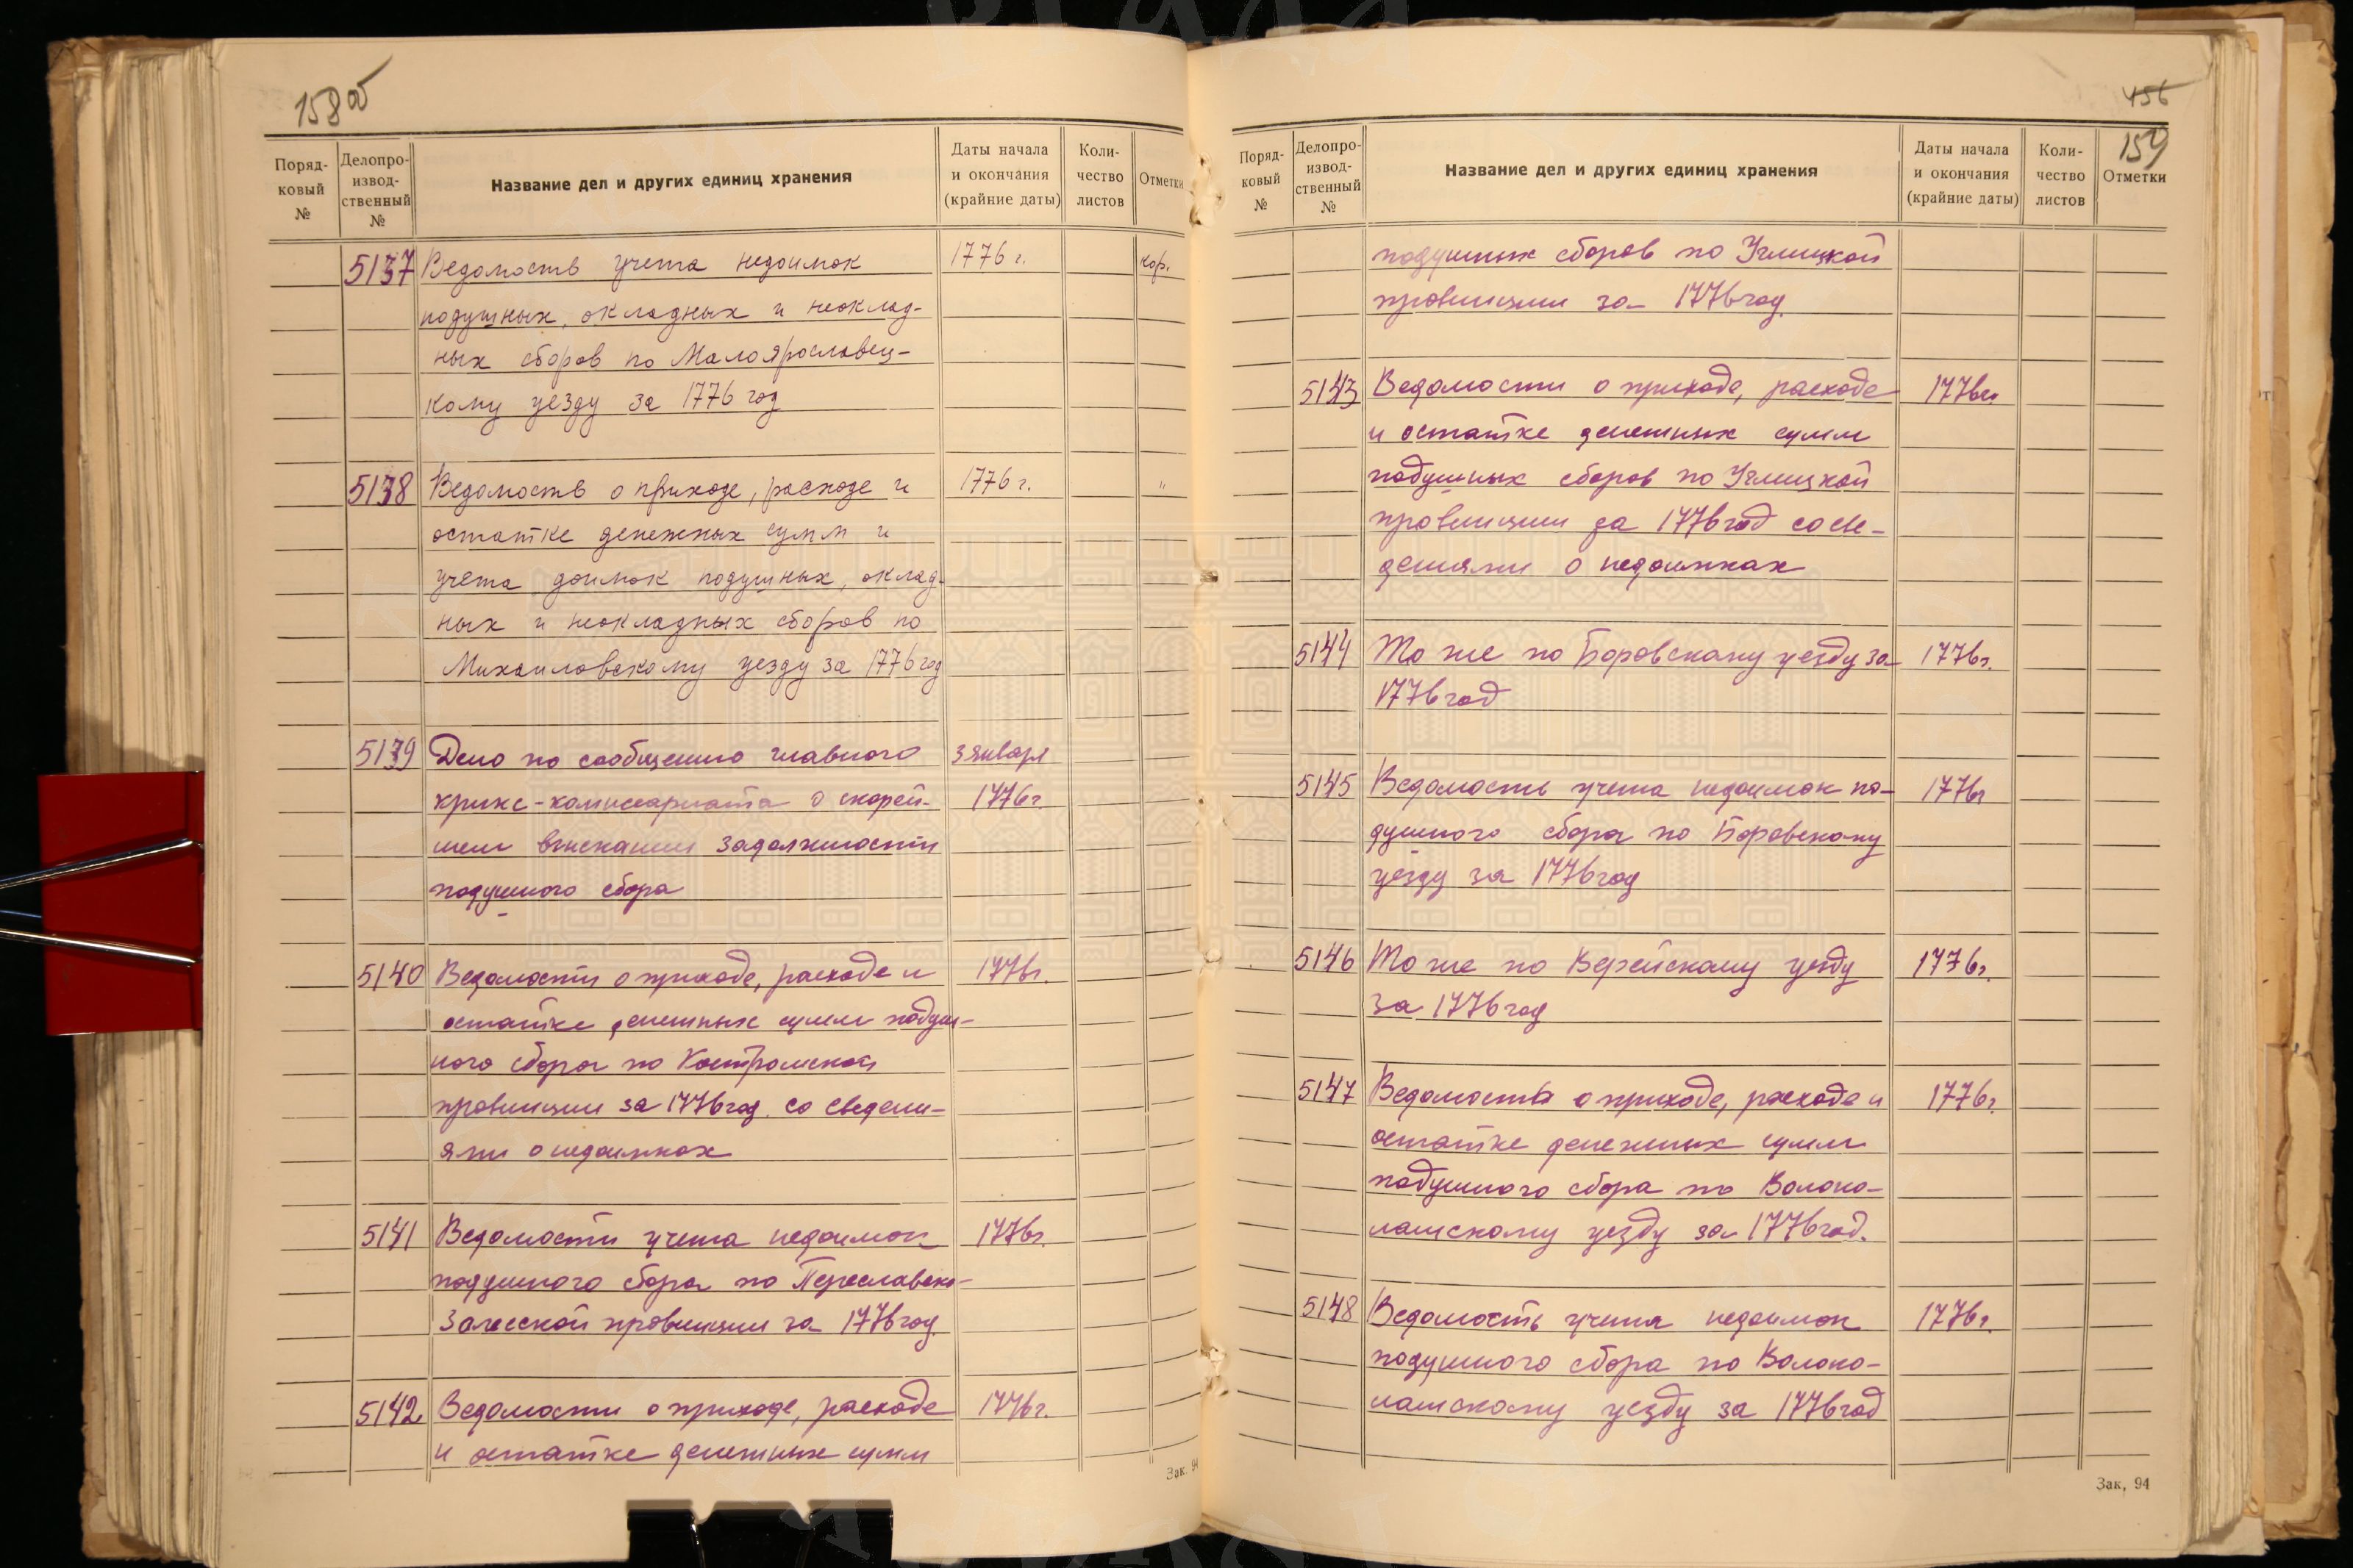 158 об
Поряд-
ковый
№
Делопро-
извод-
ственный
№
Название дел и других единиц хранения
Даты начала
и окончания
(крайние даты)
Коли-
чество
листов
Отметки
5137 Ведомость учета недоимок 1776 г. кор.
подушных, окладных и неоклад-
ных сборов по Малоярославец-
кому уезду за 1776 год
5138 Ведомость о приходе, расходе и 1776 г. "
остатке денежных сумм и
учета доимок подушных, оклад-
ных и неокладных сборов по
Михайловскому уезду за 1776 год
5139 Дело по сообщению главного 3 января
крикс-комиссариата о скорей- 1776 г
шем взыскании задолжности
подушного сбора
5140 Ведомости о приходе, расходе и 1776 г.
остатке денежных сумм подуш-
ного сбора по Костромской
провинции за 1776 год со сведени-
ями о недоимках
5141 Ведомости учета недоимок 1776 г.
подушного сбора по Переславско-
Залесской провинции за 1776 год
5142 Ведомости о приходе, расходе 1776 г.
и остатке денежных сумм
Зак. 94
456
159
Поряд-
ковый
№
Делопро-
извод-
ственный
№
Название дел и других единиц хранения
Даты начала
и окончания
(крайние даты)
Коли-
чество
листов
Отметки
подушных сборов по Углицкой
провинции за 1776 год.
5143 Ведомости о приходе, расходе 1776 г.
и остатке денежных сумм
подушных сборов по Углицкой
провинции за 1776 год со све-
дениями о недоимках
5144 То же по Боровскому уезду за 1776 г.
1776 год
5145 Ведомость учета недоимок по- 1776 г
душного сбора по Боровскому
уезду за 1776 год
5146 То же по Верейскому уезду 1776 г.
за 1776 год
5147 Ведомость о приходе, расходе и 1776 г.
остатке денежных сумм
подушного сбора по Волоко-
ламскому уезду за 1776 год.
5148 Ведомость учета недоимок 1776 г.
подушного сбора по Волоко-
ламскому уезду за 1776 год
Зак. 94